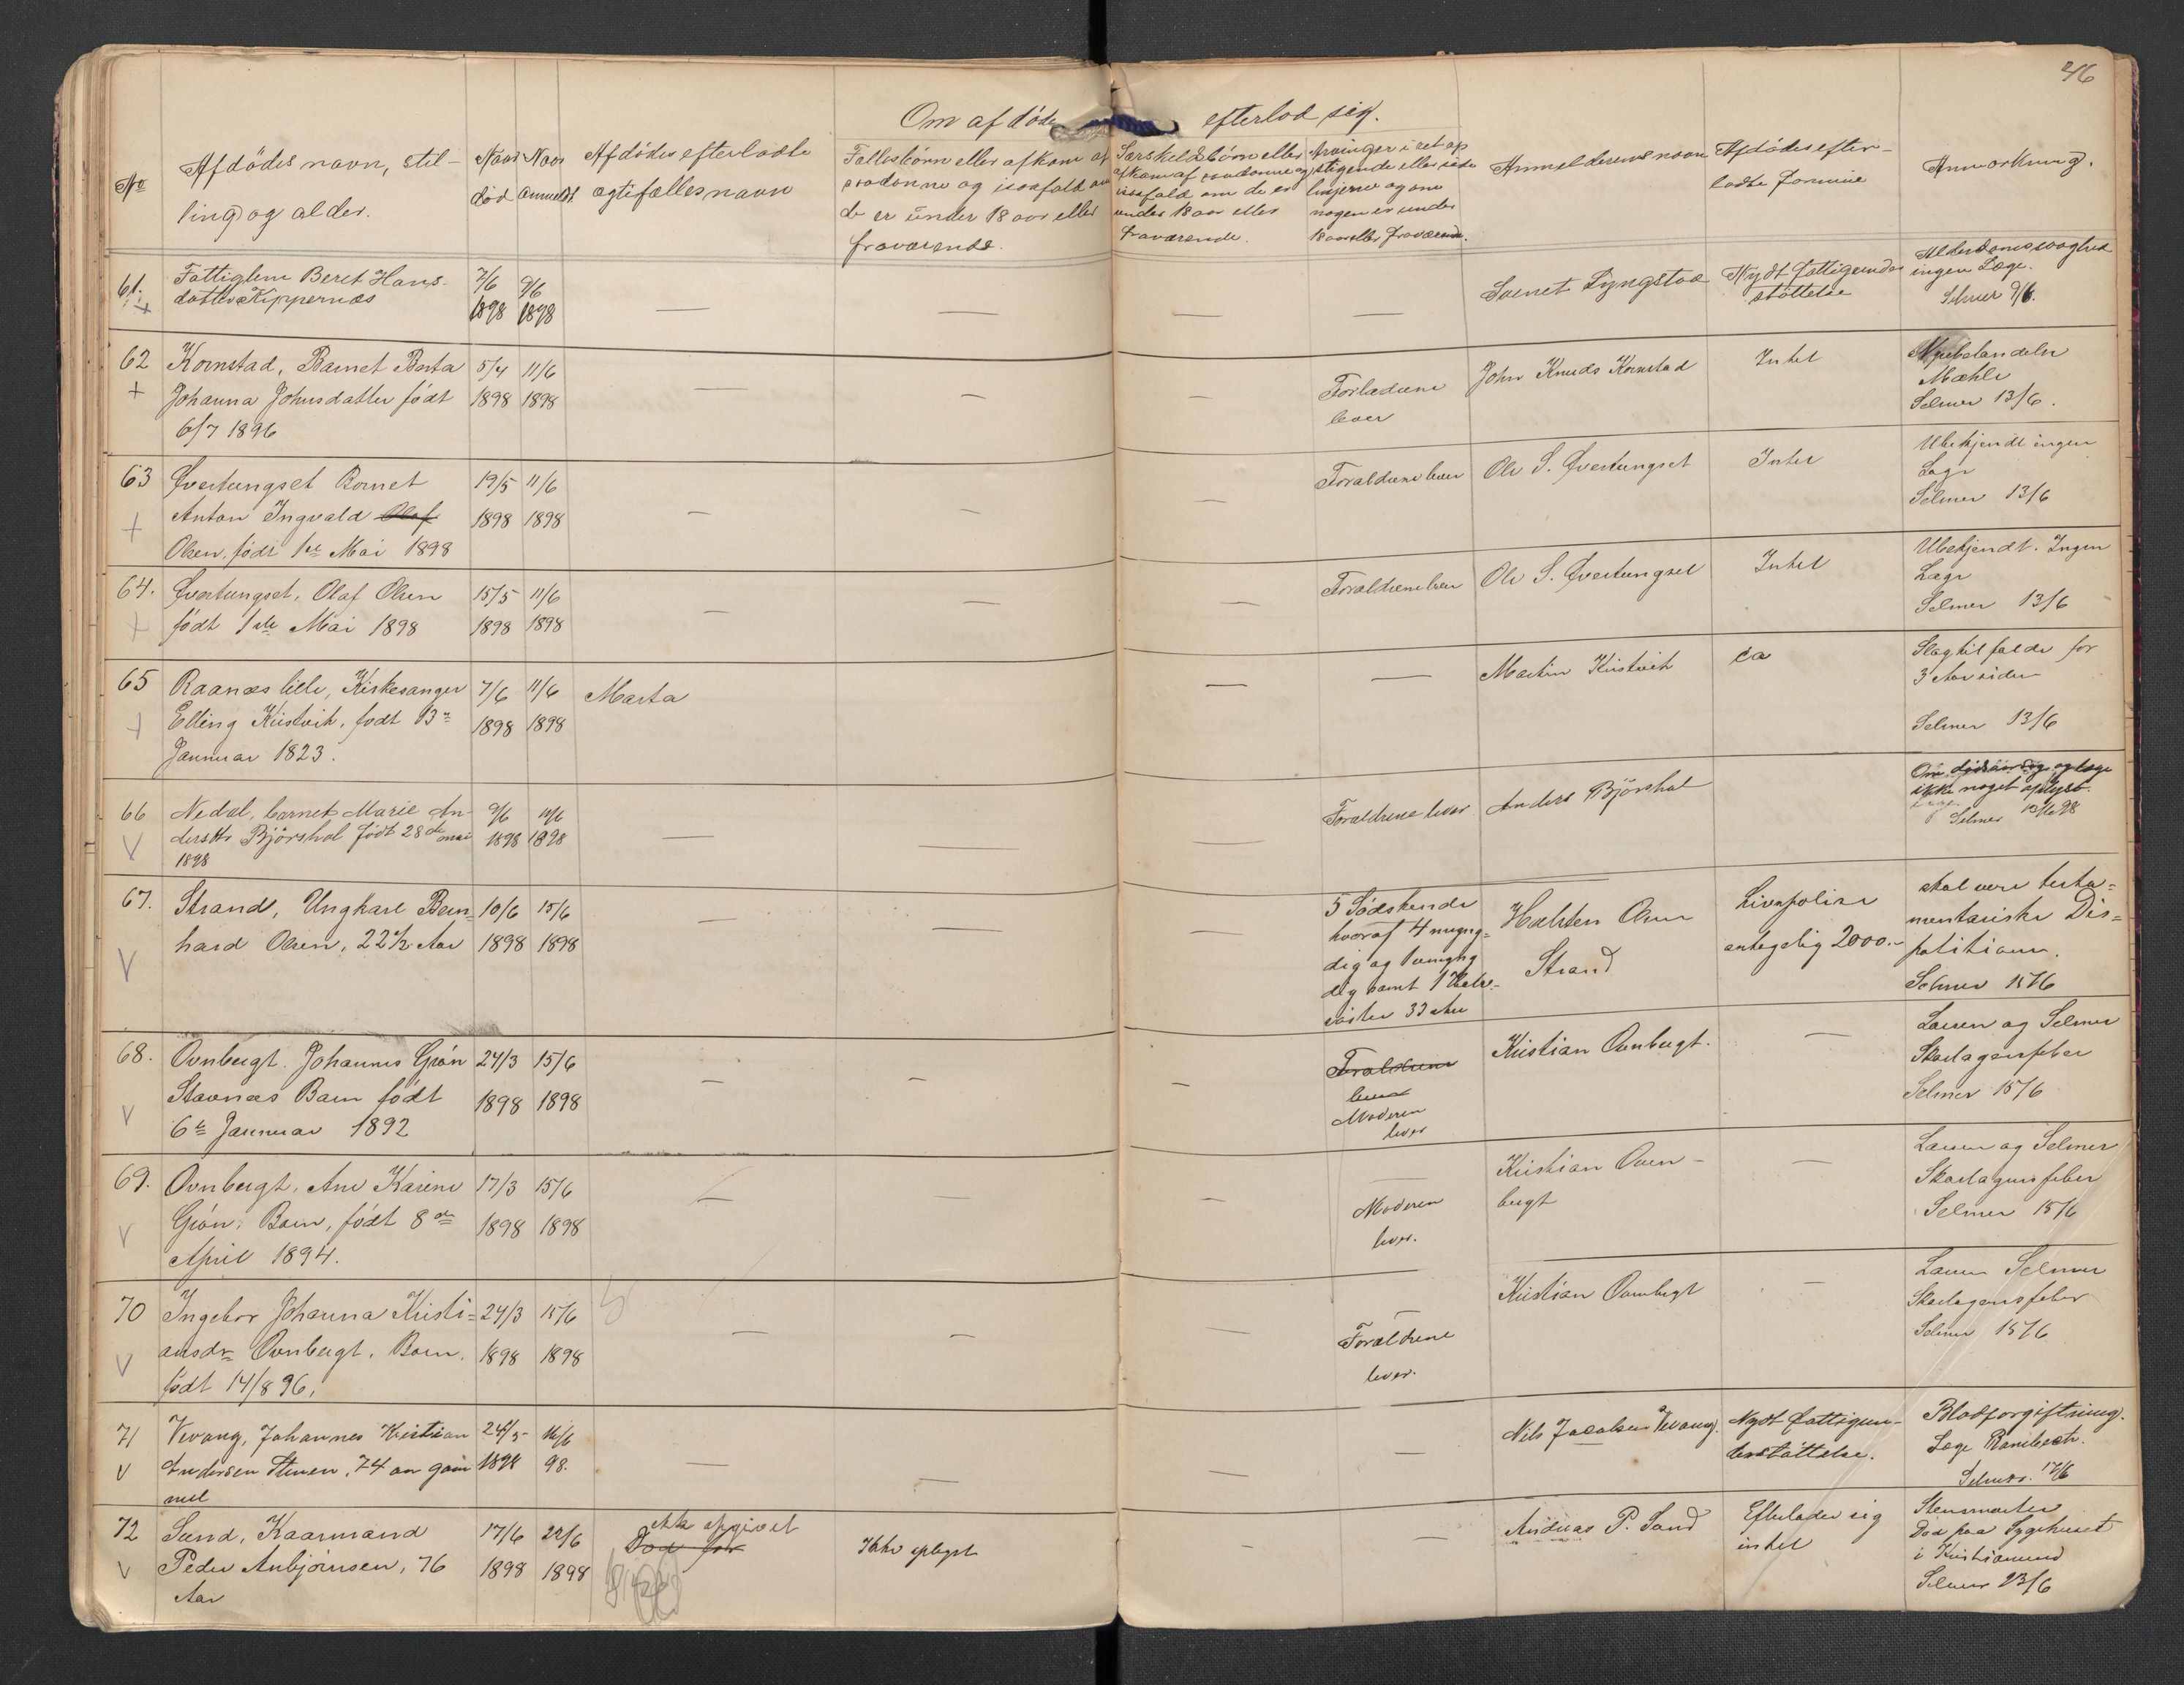 46
Om afdøde efterlod sig.
No
Afdødes navn, stil-
ling og alder.
Naar
død
Naar
anmeldt
Afdødes efterladte
ægtefælles navn
Fællesbørn eller afkom af
saadanne og i saafald om
de er under 18 aar eller
fraværende.
Særskildbørn eller
afkom af saadanne og
i saafald om de er
under 18 aar eller
fraværende.
Arvinger i ret op
stigende eller side
linjerne og om
nogen er under
18 aar eller fraværende.
Anmelderens navn
Afdødes efter-
ladte formue
Anmærkning.
61.
Fattiglem Beret Hans-
datter Kippernæs
7/6
1898
9/6
1898
—
—
—
—
Lyngstad
Nydt fattigunder
støttelse
Alderdomssvaghed
ingen Læge.
Selmer 9/6.
62
Kornstad, Barnet Berta
Johanna Johnsdatter født
6/7 1896
5/4
1898
11/6
1898
—
—
—
Forældrene
lever
John Knuds Kornstad
Intet
Mæhle
Selmer 13/6.
63
Øvertungset Barnet
Anton Ingvald Olaf
Olsen, født 1ste Mai 1898
19/5
1898
11/6
1898
—
—
—
Forældrene lever
Ole S. Øvertungset
Intet
Ubekjendt ingen
Læge
Selmer 13/6
64.
Øvertungset, Olaf Olsen
født 1ste Mai 1898
15/5
1898
11/6
1898
—
—
—
Forældrene lever
Ole S. Øvertungset
Intet
Ubekjendt. Ingen
Læge
Selmer 13/6
65
Raanæs lille, Kirkesanger
Elling Kristvik, født 13de
Januar 1823.
7/6
1898
11/6
1898
Marta
—
—
Martin Kristvik
ca
Slagtilfælde for
3 Aar siden
Selmer 13/6
66
Nedal, barnet Marie An-
dersdtr Bjørshol født 28de mai
1898
9/6
1898
14/6
1898
—
—
—
Forældrene lever
Anders Bjørshol
Om dødsaarsag og læge
ikke noget oplyst.
Selmer 14/6 98
67.
Strand, Ungkarl Bern-
hard Olsen, 22½ Aar
10/6
1898
15/6
1898
—
—
—
5 Sødskende
hvoraf 4 myn-
dig og 1 umyn
dig samt 1 Halv-
søster 33 Aar
Halsten Olsen
Strand
Livspolise
antagelig 2000.-
skal være testa-
mentariske Dis-
positioner.
Selmer 15/6
68.
Ovnbergt. Johannes Grøn
Stavnæs Barn født
6te Januar 1892
24/3
1898
15/6
1898
—
—
—
Forældrene
lever
Moderen
lever
Kristian Ovnbergt.
—
Larsen og Selmer
Skarlagensfeber
Selmer 15/6
69.
Ovnbergt, Ane Karine
Grøn, Barn, født 8de
April 1894.
17/3
1898
15/6
1898
—
—
—
Moderen
lever.
Kristian Ovn-
bergt
—
Larsen og Selmer
Skarlagensfeber
Selmer 15/6
70
Ingebor Johanna Kristi-
ansdr Ovnbergt. Barn.
født 14/8 96.
24/3
1898
15/6
1898
—
—
—
—
Forældrene
lever.
Kristian Ovnbergt
—
Larsen Selmer
Skarlagensfeber
Selmer 15/6
71
Vevang, Johannes Kristian
Andersen Stenen, 74 aar gam
mel
24/5
1898
16/6
98.
—
—
—
—
Nils Jacobsen Vevang.
Nydt fattigun-
derstøttelse.
Blodforgiftning.
Læge
Selmer. 17/6
72
Sand, Kaarmand
Peder Anbjørnsen, 76
Aar
17/6
1898
22/6
1898
ikke opgivet
Død før
Ikke oplyst
—
—
Andreas P. Sand
Efterlader sig
intet
Stensmerter
Død paa Sygehuset
i Kristiansund
Selmer 23/6